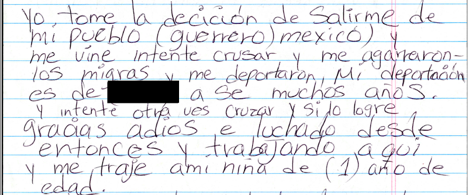 yo, tome la decición de Salirme de
mi pueblo (guerrero) mexico) y
me vine intente crusar y me agarraron-
los migras y me deportaron, Mi deportación
es de a se muchos años.
y intente otra ves cruzar y si lo logre
gracias adios e luchado desde
entonces y trabajando aqui
y me traje ami niña de (1) año de
edad.